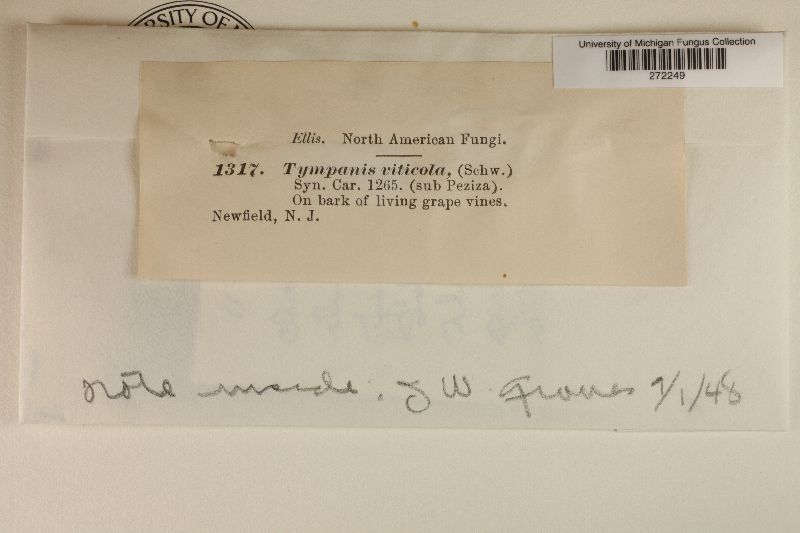 SITY OF
University of Michigan Fungus Collection
272249
Ellis. North American Fungi.
1317. Tympanis viticola, (Schw.)
Syn. Car. 1265. (sub Peziza).
On bark of living grape vines.
Newfield, N. J.
note inside. J W Groves 9/1/48